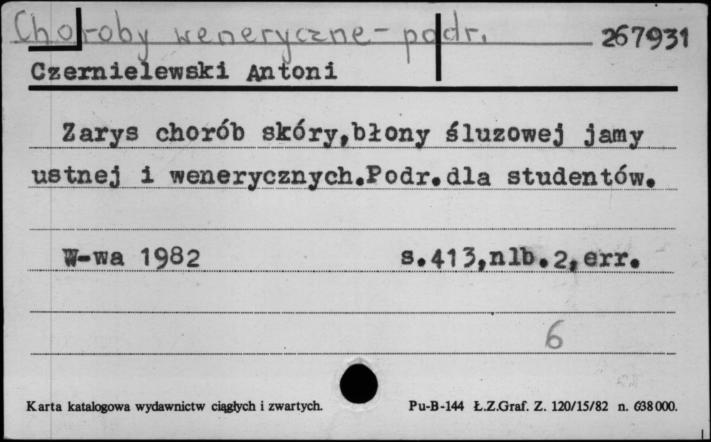 Choroby weneryczne - podr. 267931
Czernielewski Antoni
Zarys chorób skóry,błony śluzowej jamy
ustnej i wenerycznych.Podr.dla studentów.
W-wa 1982 s.413,nlb.2,err.
6
Karta katalogowa wydawnictw ciągłych i zwartych. Pu-B-144 Ł.Z.Graf. Z. 120/15/82 n. 638000.